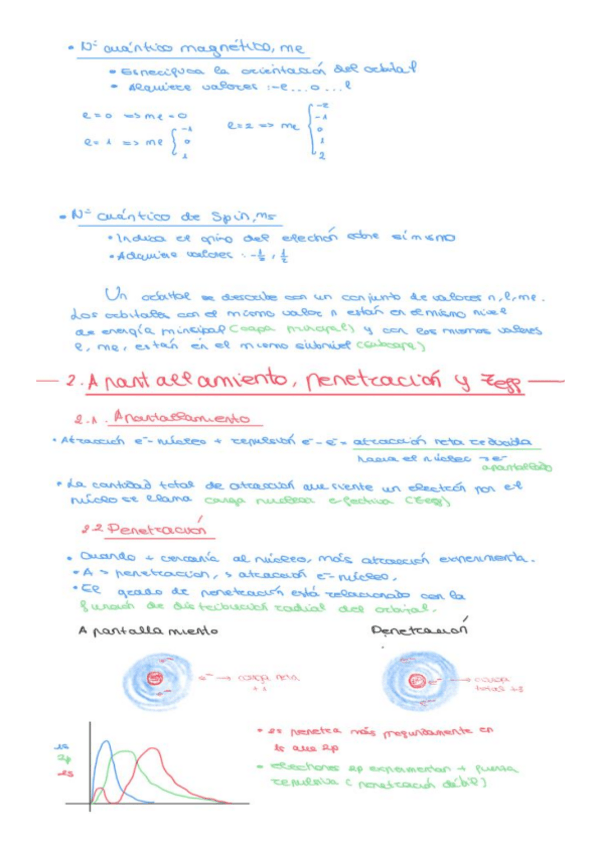 • Nº cuántico magnético, me
• Especifica la orientación del orbital
• Adquiere valores : -e...0...e
e=0 => me=0
e=1 => me { -1 0 1
e=2 => me { -2 -1 0 1 2
• Nº cuántico de Spin, ms
• Indica el giro del electrón sobre sí mismo
• Adquiere valores : -½, ½
Un orbital se describe con un conjunto de valores n, l, me.
Los orbitales con el mismo valor n están en el mismo nivel
de energía principal (capa principal) y con los mismos valores
l, me, están en el mismo subnivel (subcapa)
2. Apantallamiento, penetración y Zeff
2.1. Apantallamiento
• Atracción e⁻-núcleo + repulsión e⁻-e⁻ = atracción neta reducida
hacia el núcleo → e⁻
apantallado
• La cantidad total de atracción que siente un electrón por el
núcleo se llama carga nuclear efectiva (Zeff)
2.2 Penetración
• Cuando + cercanía al núcleo, más atracción experimenta.
• A > penetración, > atracción e⁻-núcleo.
• El grado de penetración está relacionado con la
función de distribución radial del orbital.
Apantallamiento
Penetración
e⁻ → carga neta
+1
→ carga
total +3
1s
2p
2s
• 2s penetra más profundamente en
1s que 2p
• electrones 2p experimentan + fuerza
repulsiva (penetración débil)